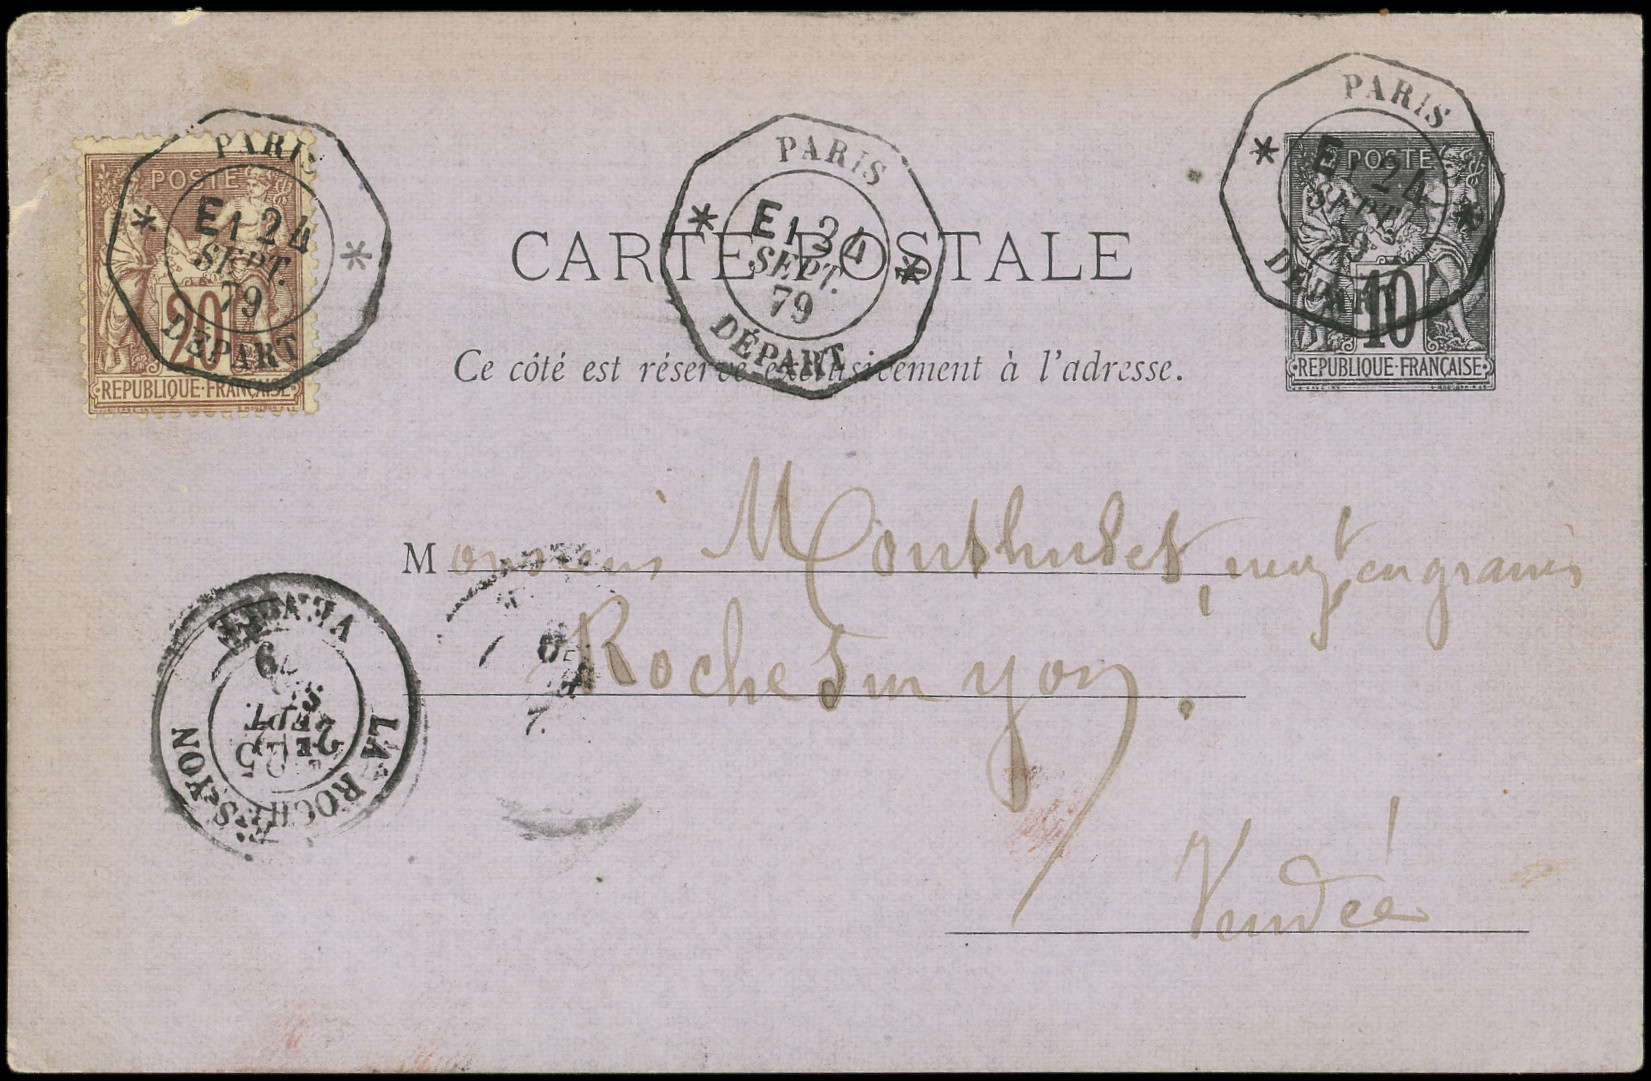 PARIS
POSTE
E 1 24
SEPT.
79
20
DÉPART
REPUBLIQUE·FRANÇAISE
PARIS
E 1 24
SEPT.
79
DÉPART
PARIS
POSTE
E 1 24
SEPT.
79
DÉPART
10
REPUBLIQUE·FRANÇAISE
CARTE POSTALE
Ce côté est réservé exclusivement à l'adresse.
Monsieur Monthulet, négt en grains
Roche sur yon
Vendée
LA ROCHE-S-YON
2E
25
SEPT.
79
VENDÉE